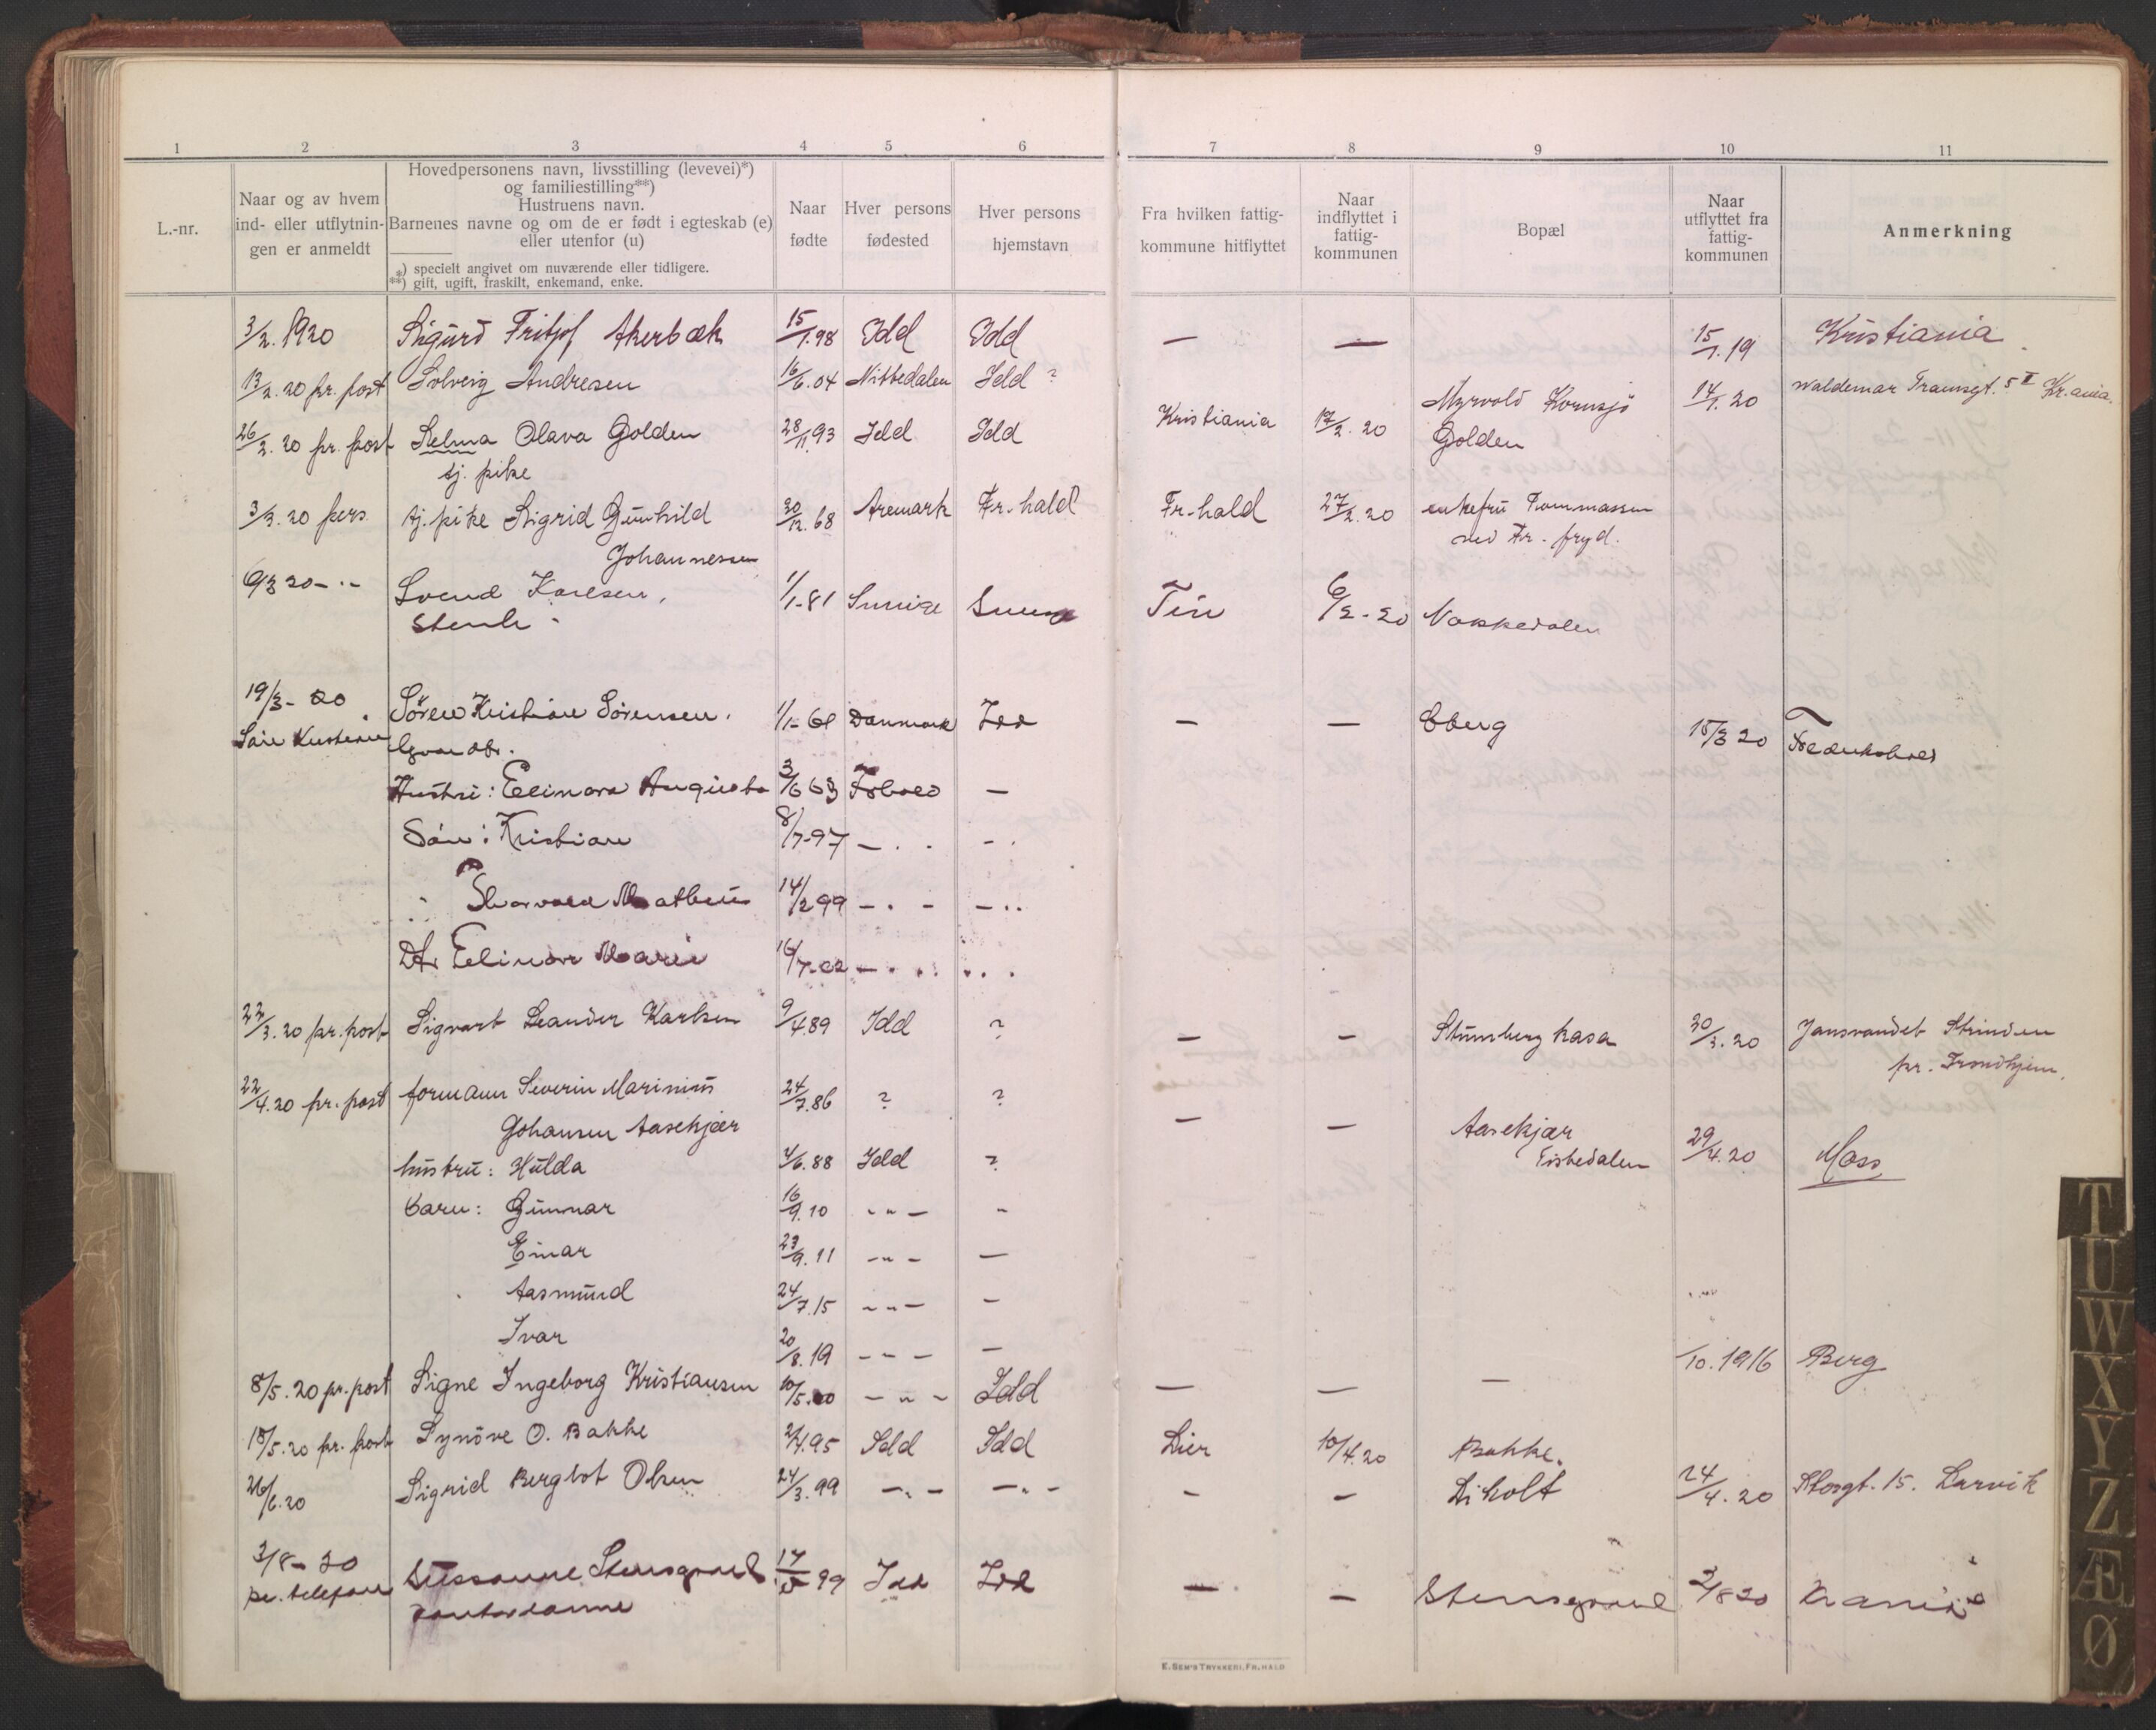 1 2 3 4 5 6 7 8 9 10 11
L.-nr.
Naar og av hvem
ind- eller utflytnin-
gen er anmeldt
Hovedpersonens navn, livsstilling (levevei)*)
og familiestilling**)
Hustruens navn.
Barnenes navne og om de er født i egteskab (e)
eller utenfor (u)
*) specielt angivet om nuværende eller tidligere.
**) gift, ugift, fraskilt, enkemand, enke.
Naar
fødte
Hver persons
fødested
Hver persons
hjemstavn
Fra hvilken fattig-
kommune hitflyttet
Naar
indflyttet i
fattig-
kommunen
Bopæl
Naar
utflyttet fra
fattig-
kommunen
Anmerkning
3/2. 1920 Sigurd Fritjof Akerbæk 15/1.98 Idd Idd — — 15/1.19 Kristiania
13/2. 20 pr. post Solveig Andresen 16/6.04 Nittedalen Idd ? 14/1.20 Waldemar Tranesgt. 5 I Kr.ania.
26/2. 20 pr. post Selma Olava Golden 28/11.93 Idd Idd Kristiania 17/2. 20 Myrvold Kornsjö
Golden
tj. pike
3/3. 20 pers tj. pike Sigrid Gunhild 20/12.68 Aremark Fr.hald Fr.hald 27/2.20 enkefru Tommassen
Johannessen ved Fr. fryd.
6/3 20 - " - Svend Karlsen, 1/1-81 Sverige Tin 6/2-20
19/3- 20 Sören Kristian Sörensen. Danmark Idd — — Eberg 15/3 20
Hustru: Elinora Augusta 3/6 63 —
Sön: Kristian 8/7-97 — . . - .
14/2 99 — . - — . .
Dtr Elinor Marie
22/3. 20 pr. post Sigvart Leander Karlsen 9/4.89 Idd ? — — Stumberg hasa 30/3.20 Jansvandet Strinden
pr. Trondhjem.
22/4. 20 pr. post formann Severin Marinius 24/7.86 ? ? — —
Johansen Aasekjær Aasekjær 29/4.20 Moss
hustru: Hulda 4/6.88 Idd ? Fiskedalen
barn: Gunnar 16/9.10 - " — -
Einar 23/9.11 - " - —
Aasmund 24/7.15 - " — —
Ivar 20/8.19 - - - —
8/5. 20 pr. post Signe Ingeborg Kristiansen 10/5.00 - " - Idd — — — /10. 1916 Berg
18/5. 20 pr. post Synöve O. Bakke 2/4.95 Idd Idd Lier 10/4.20 Bakke.
26/6.20 Sigrid Bergliot Olsen 24/3.99 — " - — " - — — Liholt 24/4.20 Storgt. 15. Larvik
3/8- 20 Stensgaard 99 Idd Idd — — Stensgaard 2/8 20 Kr.ania
pr. telefon kontordame
E. SEM'S TRYKKERI, FR.HALD
T
U
W
X
Y
Z
Æ
Ø